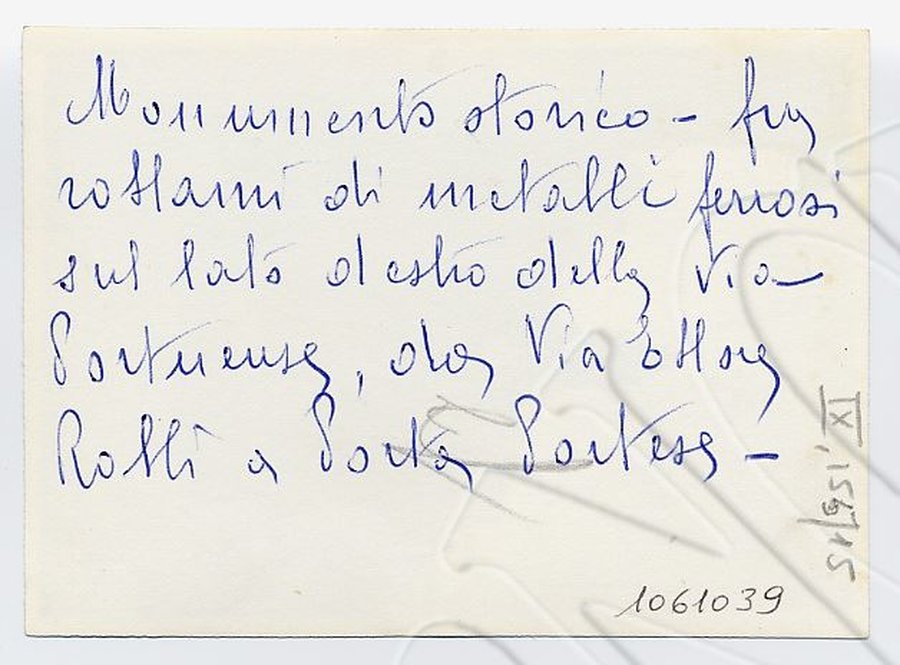 Monumento storico - fra
rottami di metalli ferrosi
sul lato destro della Via
Portuense, da Via Ettore
Rolli a Porta Portese -
IX, 159/15
1061039